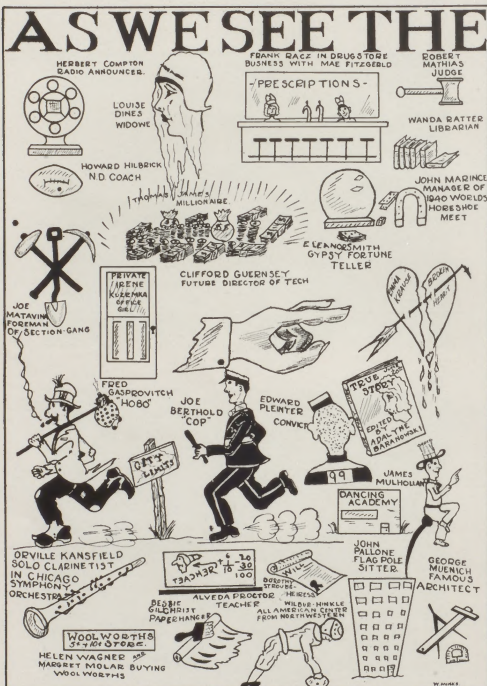 AS WE SEE THE
HERBERT COMPTON
RADIO ANNOUNCER.
FRANK RACZ IN DRUGSTORE
BUSNESS WITH MAE FITZGERLD
ROBERT
MATHIAS
JUDGE
-PRESCRIPTIONS-
LOUISE
DINES
WIDOWE
WANDA RATTER
LIBRARIAN
HOWARD HILBRICK
N.D. COACH
THOMAS JAMES
MILLIONAIRE.
JOHN MARINCE
MANAGER OF
1940 WORLDS
HORESHOE
MEET
ELEANOR SMITH
GYPSY FORTUNE
TELLER
CLIFFORD GUERNSEY
FUTURE DIRECTOR OF TECH
PRIVATE
IRENE
KUZEMKA
OFFICE
GIRL
EMMA
KRAUSE
BROKEN
HEART
JOE
MATAVINA
FOREMAN
OF SECTION-GANG
FRED
GASPROVITCH
"HOBO"
JOE
BERTHOLD
"COP"
EDWARD
PLENTER
CONVICT
99
TRUE
STORY
EDITED
BY
ADALYNE
BARANOWSKI
CITY
LIMITS
JAMES
MULHOLLAN
DANCING
ACADEMY
ORVILLE KANSFIELD
SOLO CLARINETIST
IN CHICAGO
SYMPHONY
ORCHESTRA
TEACHER
ALVEDA PROCTOR
TEACHER
WILL
DOROTHY
STRUBE-
HEIRESS-
JOHN
PALLONE
FLAG POLE
SITTER.
GEORGE
MUENICH
FAMOUS
ARCHITECT
BESSIE
GILCHRIST
PAPERHANGER
WILBUR-HINKLE
ALL AMERICAN CENTER
FROM NORTHWESTERN
WOOLWORTHS
5¢ & 10¢ STORE.
HELEN WAGNER AND
MARGRET MOLAR BUYING
WOOLWORTHS